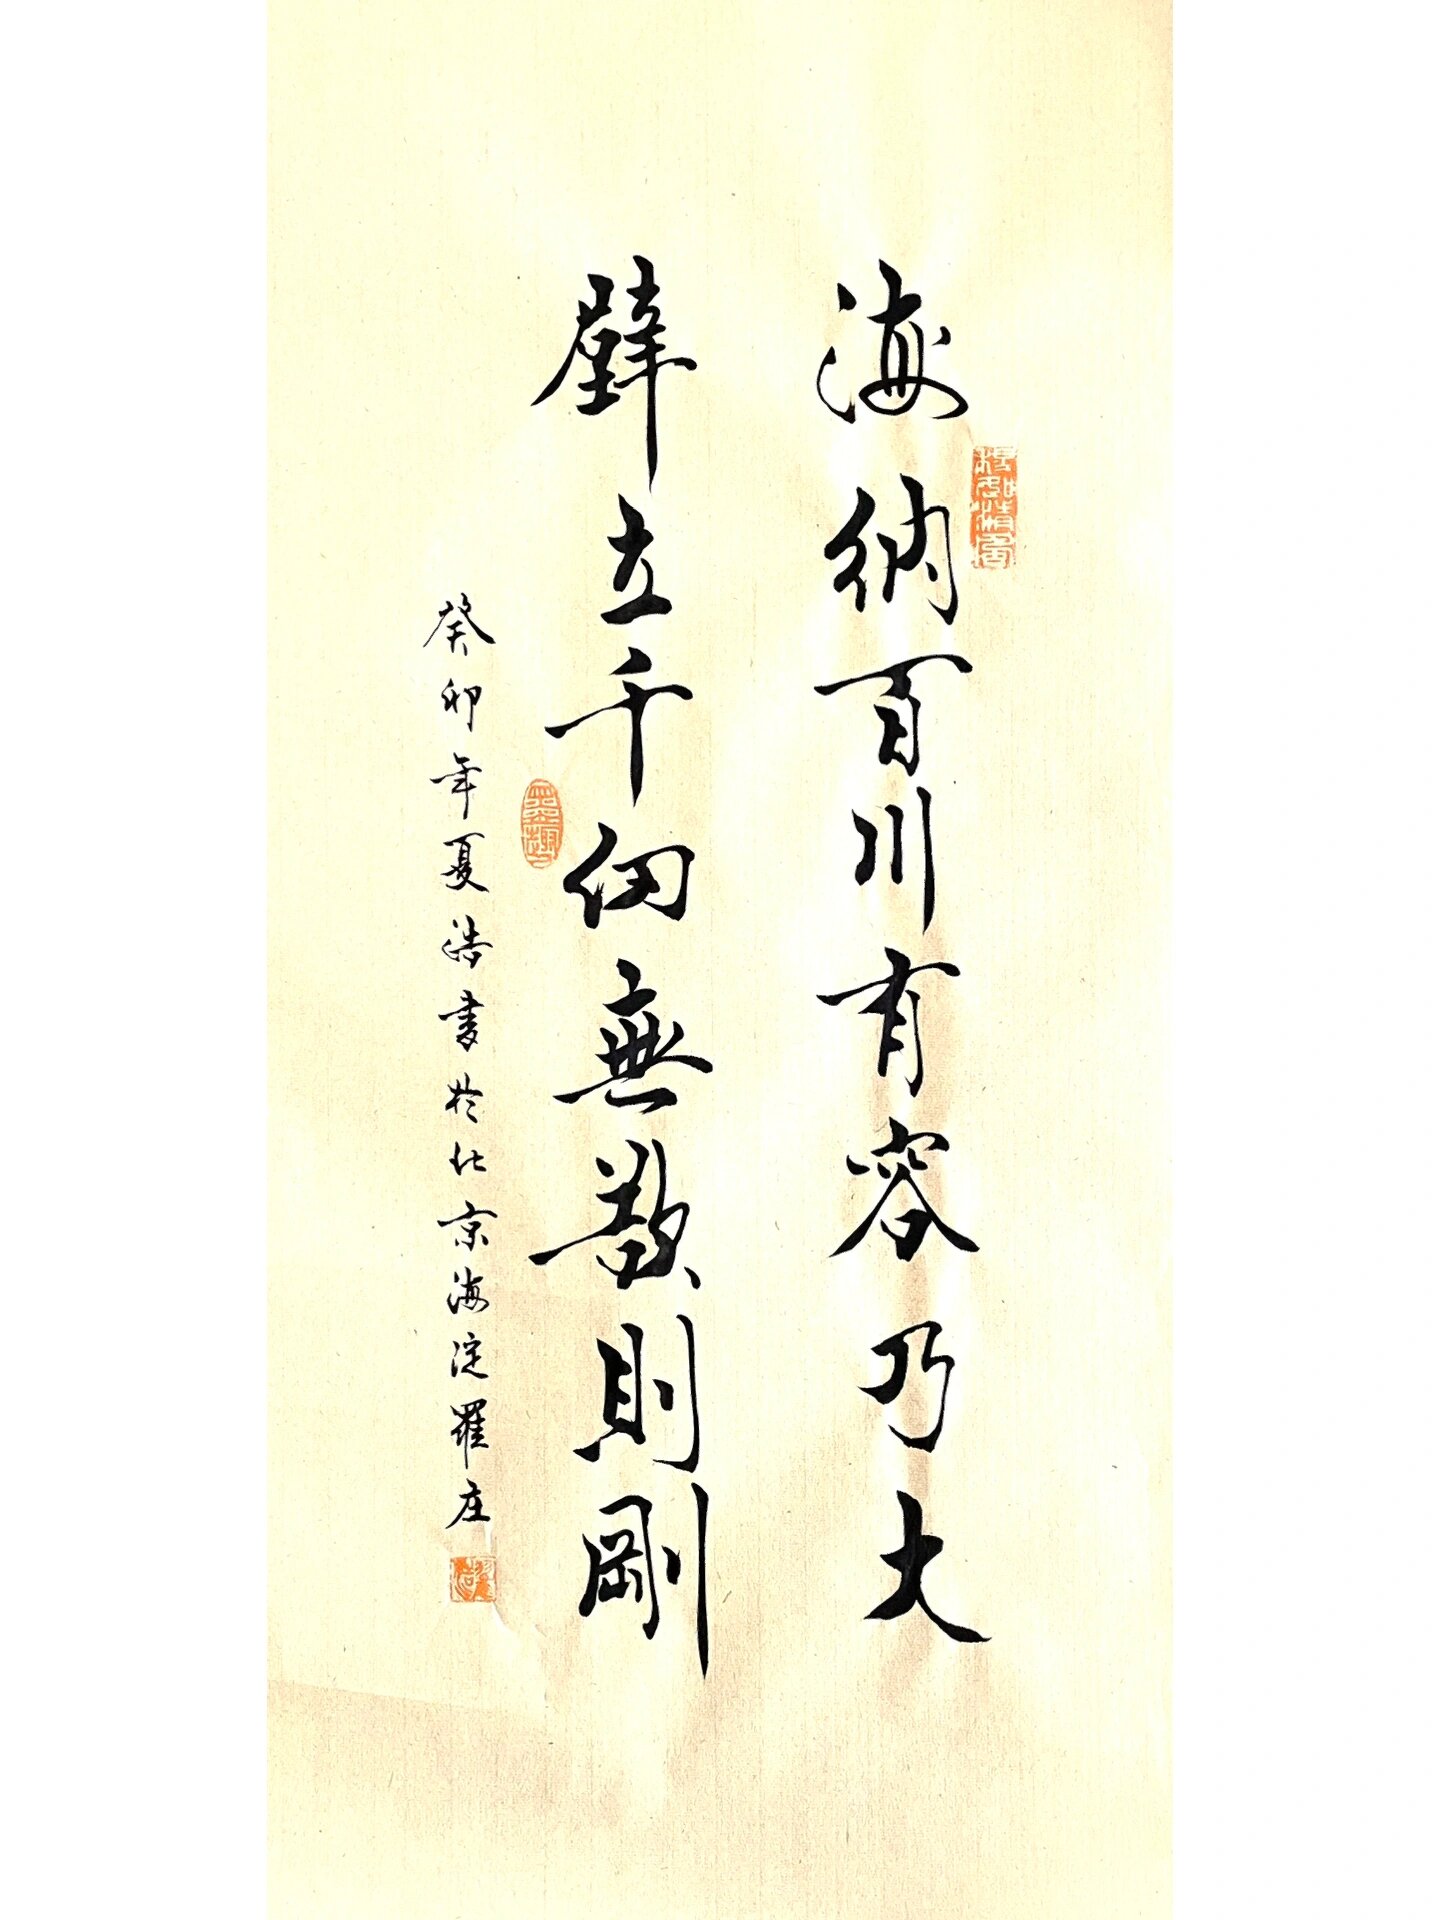 海納百川有容乃大
壁立千仞無欲則剛
癸卯年夏浩書於北京海淀羅庄
墨趣